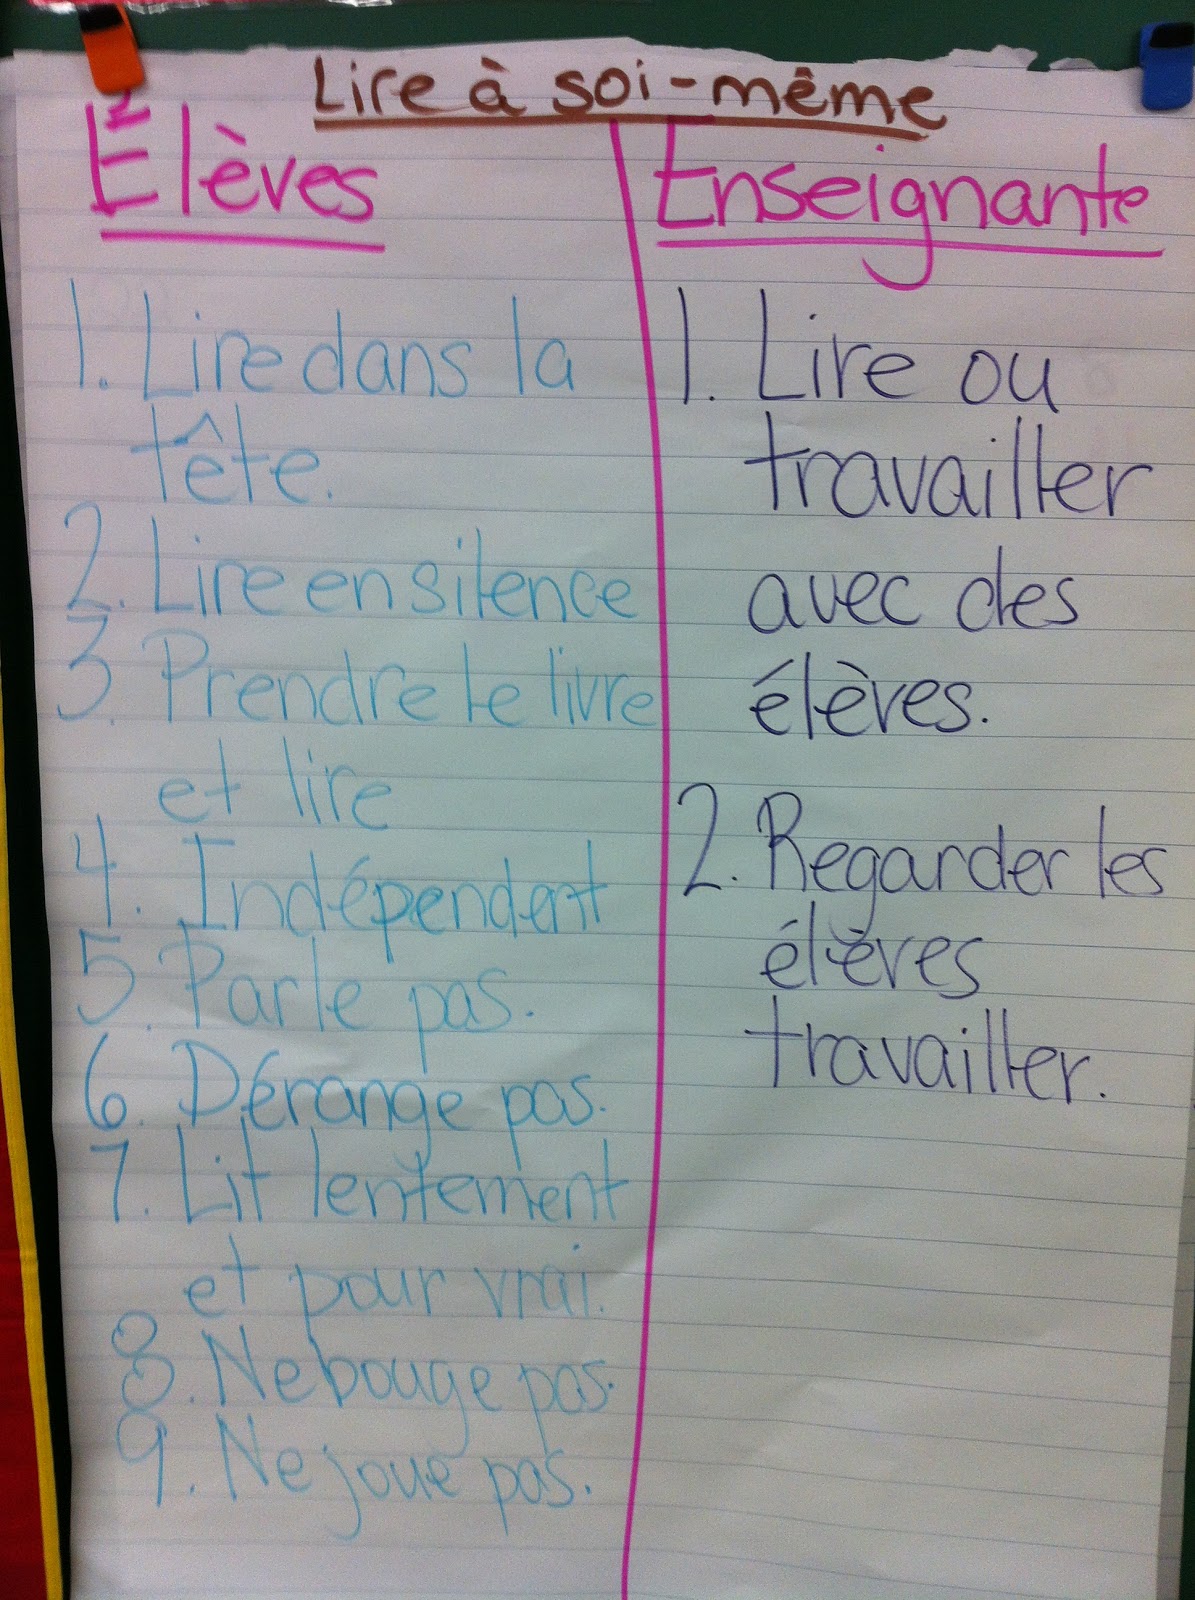 Lire à soi-même
Élèves
1. Lire dans la
tête.
2. Lire en silence
3. Prendre le livre
et lire
4. Indépendant
5. Parle pas.
6. Dérange pas.
7. Lit lentement
et pour vrai.
8. Ne bouge pas.
9. Ne joue pas.
Enseignante
1. Lire ou
travailler
avec des
élèves.
2. Regarder les
élèves
travailler.